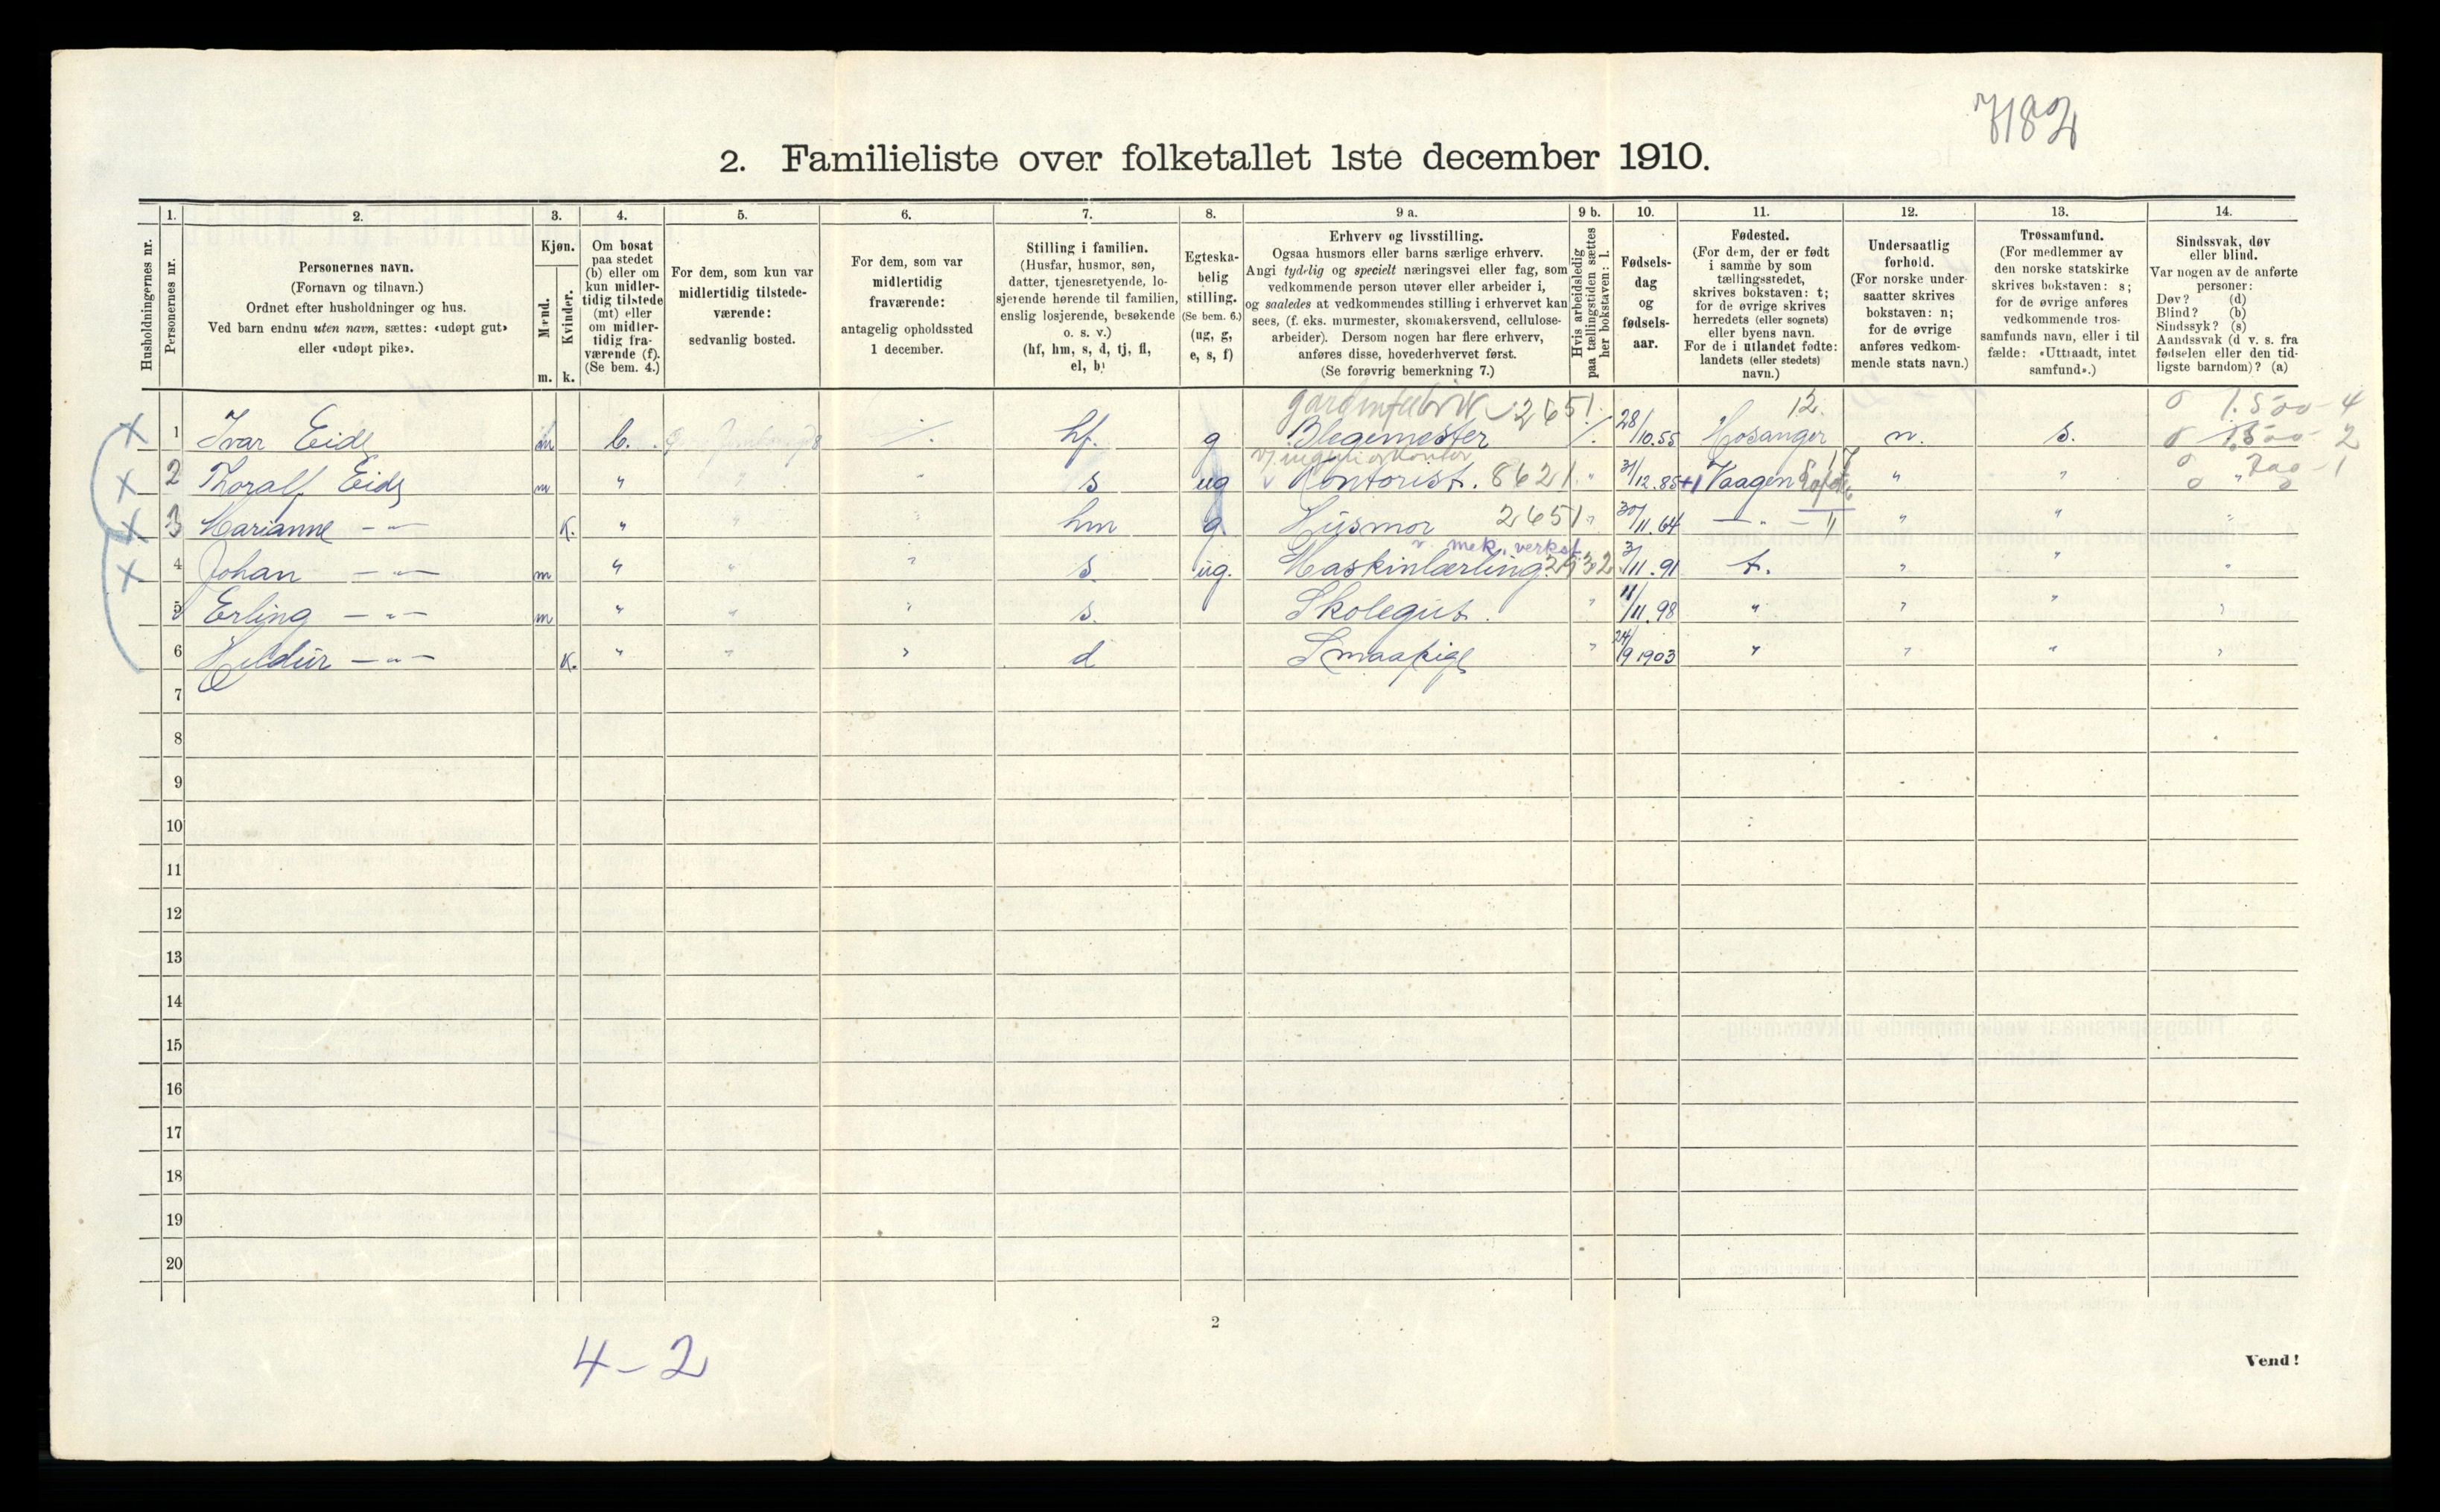 7182
2. Familieliste over folketallet 1ste december 1910.
Husholdningernes nr.
1.
Personernes nr.
2.
Personernes navn.
(Fornavn og tilnavn.)
Ordnet efter husholdninger og hus.
Ved barn endnu uten navn, sættes: «udøpt gut»
eller «udøpt pike».
3.
Kjøn.
Mænd.
Kvinder.
m. k.
4.
Om bosat
paa stedet
(b) eller om
kun midler-
tidig tilstede
(mt) eller
om midler-
tidig fra-
værende (f).
(Se bem. 4.)
5.
For dem, som kun var
midlertidig tilstede-
værende:
sedvanlig bosted.
6.
For dem, som var
midlertidig
fraværende:
antagelig opholdssted
1 december.
7.
Stilling i familien.
(Husfar, husmor, søn,
datter, tjenestetyende, lo-
sjerende hørende til familien,
enslig losjerende, besøkende
o. s. v.)
(hf, hm, s, d, tj, fl,
el, b)
8.
Egteska-
belig
stilling.
(Se bem. 6.)
(ug, g,
e, s, f)
9 a.
Erhverv og livsstilling.
Ogsaa husmors eller barns særlige erhverv.
Angi tydelig og specielt næringsvei eller fag, som
vedkommende person utøver eller arbeider i,
og saaledes at vedkommendes stilling i erhvervet kan
sees, (f. eks. murmester, skomakersvend, cellulose-
arbeider). Dersom nogen har flere erhverv,
anføres disse, hovederhvervet først.
(Se forøvrig bemerkning 7.)
9 b.
Hvis arbeidsledig
paa tællingstiden sættes
her bokstaven: l.
10.
Fødsels-
dag
og
fødsels-
aar.
11.
Fødested.
(For dem, der er født
i samme by som
tællingsstedet,
skrives bokstaven: t;
for de øvrige skrives
herredets (eller sognets)
eller byens navn.
For de i utlandet fødte:
landets (eller stedets)
navn.)
12.
Undersaatlig
forhold.
(For norske under-
saatter skrives
bokstaven: n;
for de øvrige
anføres vedkom-
mende stats navn.)
13.
Trossamfund.
(For medlemmer av
den norske statskirke
skrives bokstaven: s;
for de øvrige anføres
vedkommende tros-
samfunds navn, eller i til
fælde: «Uttraadt, intet
samfund».)
14.
Sindssvak, døv
eller blind.
Var nogen av de anførte
personer:
Døv? (d)
Blind? (b)
Sindssyk? (s)
Aandssvak (d v. s. fra
fødselen eller den tid-
ligste barndom)? (a)
2651. 12. 0 1.500-4
x 1 Ivar Eide m b. ./. hf. g Blegemester ./. 28/10.55 Hosanger n. s. 0 1.500-2
17 0 700-1
x 2 Thoralf Eide m " " " s ug Kontorist. 8621 " 31/12.85 +1 Vaagen " "
x 3 Marianne - " - K. " " " hm g. Husmor 2651 " 30/11.64 - " - " " "
v. mek. verkst.
x 4 Johan - " - m " " " s. ug. Maskinlærling. 2932 3/11.91 t. " " "
5 Erling - " - m " " " s. Skolegut. " 11/11.98 " " " "
6 Hildur - " - K. " " " d Smaapige " 24/9 1903 " " " "
7
8
9
10
11
12
13
14
15
16
17
18
19
20
2
4-2
Vend!